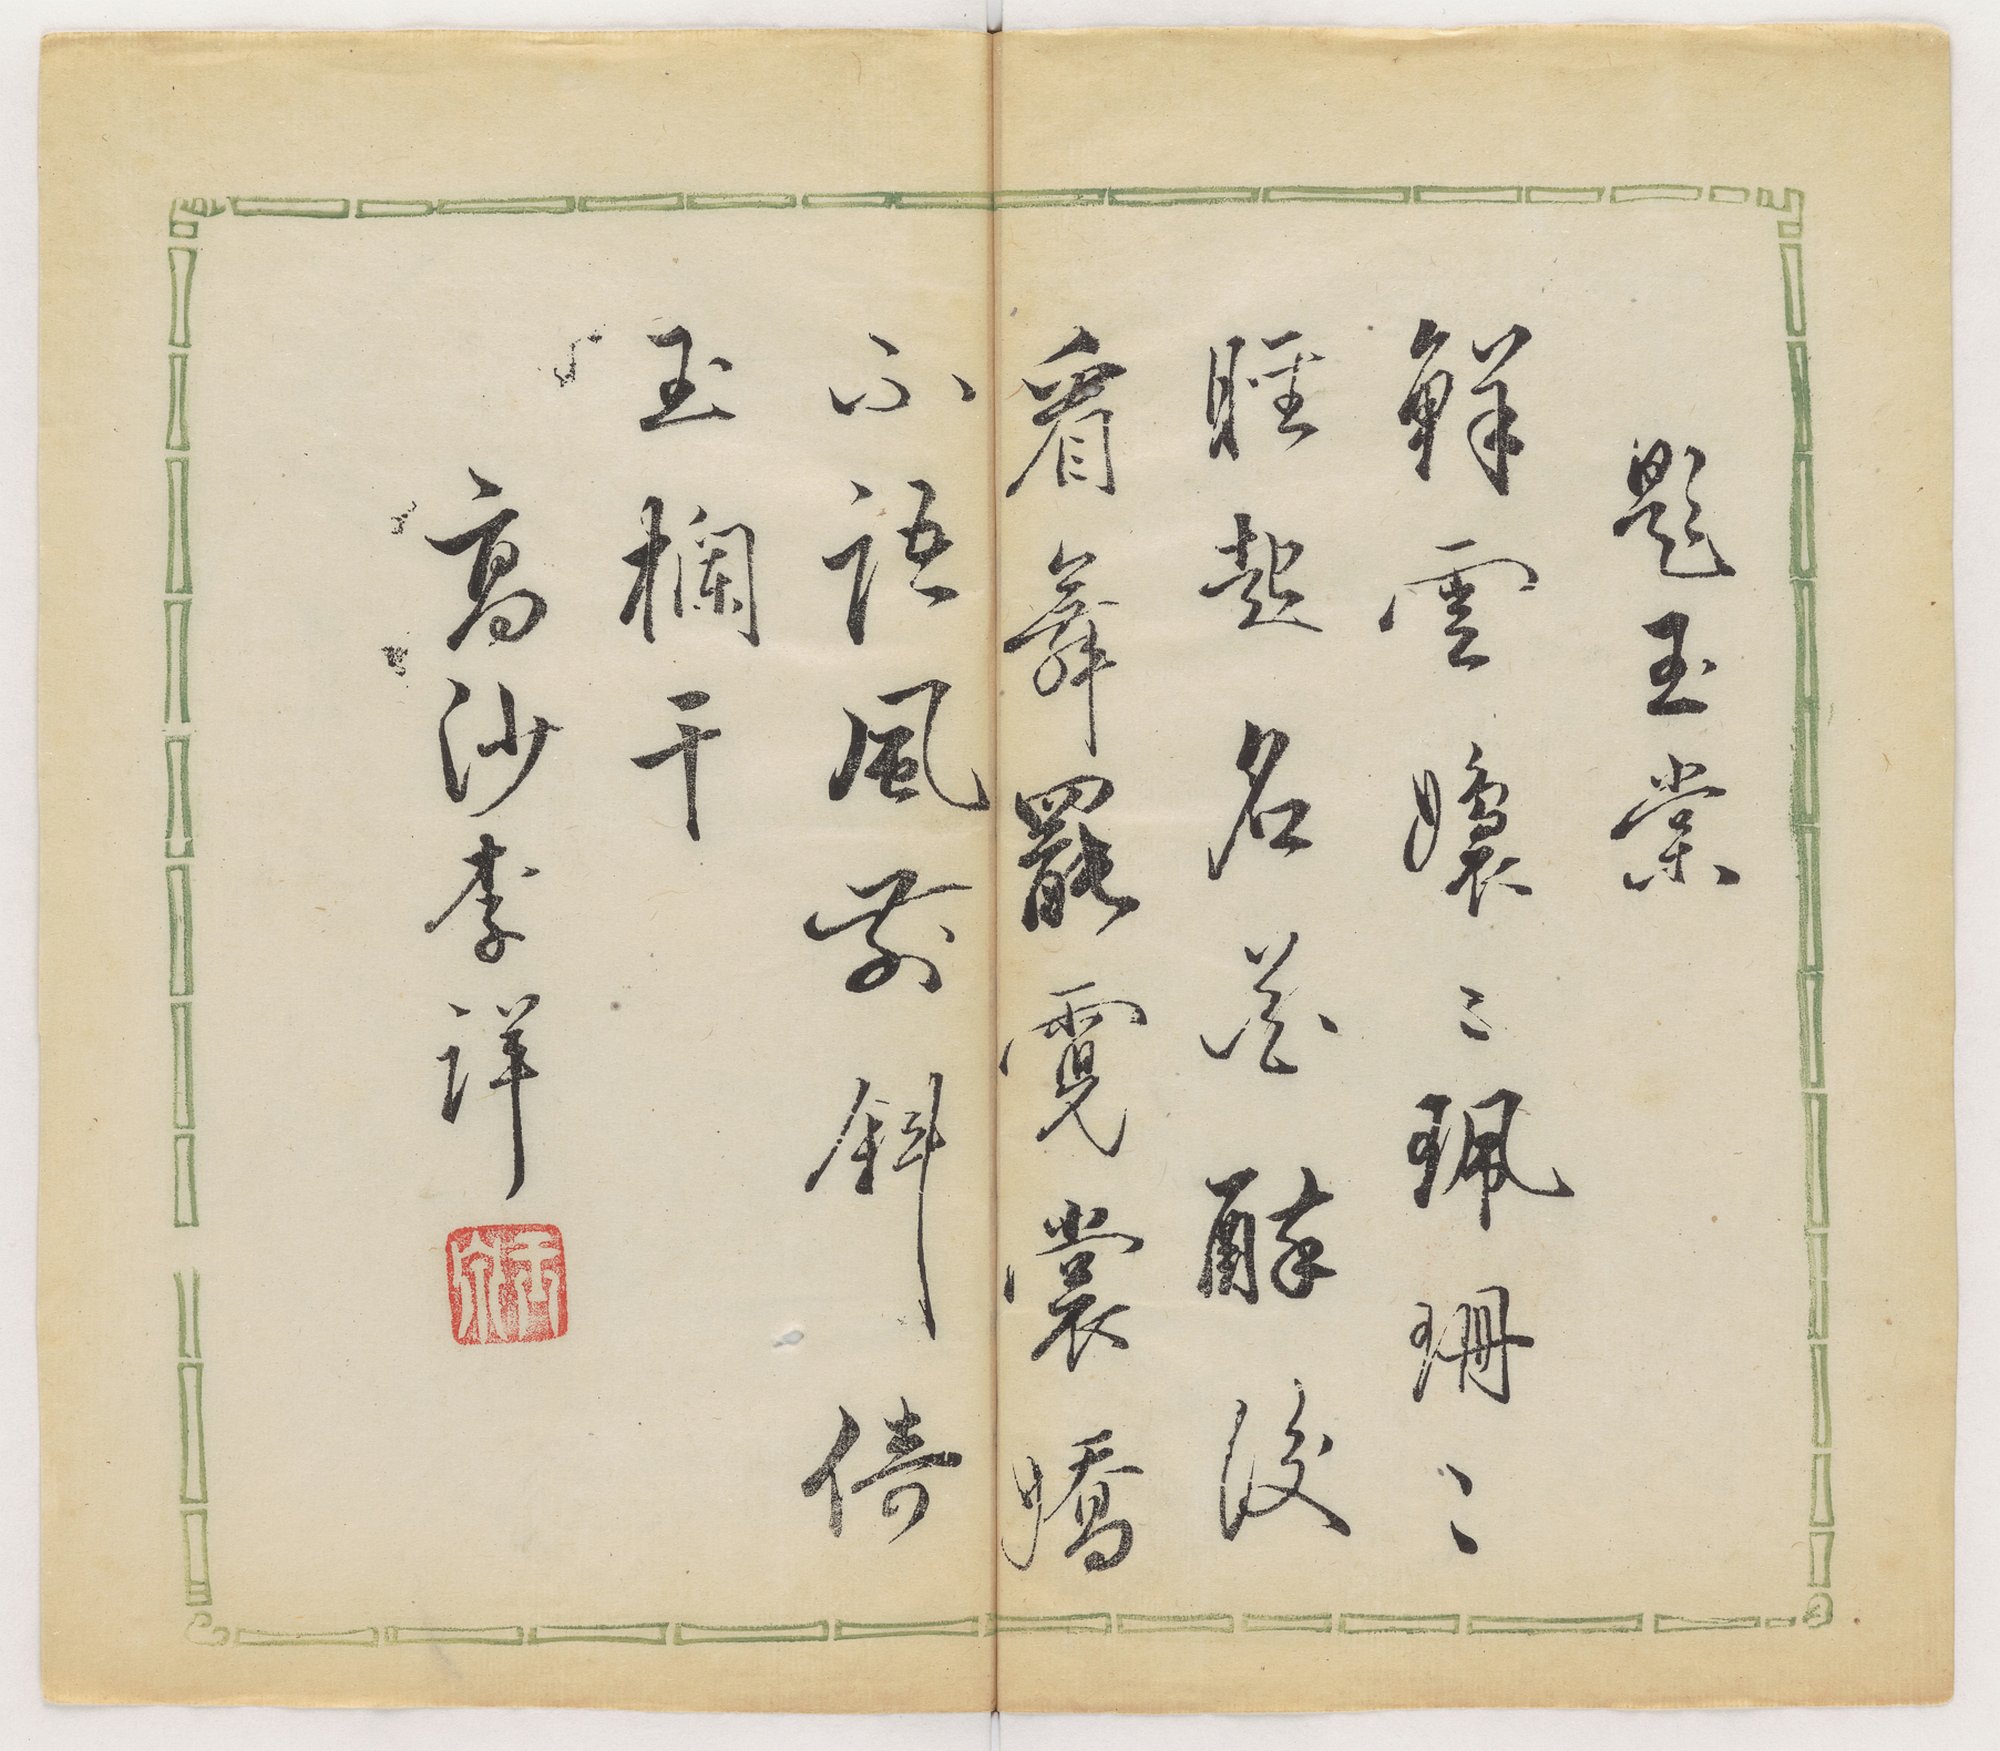 題玉棠
鮮雲嬝〻珮珊〻
睡起名花醉後
看舞罷霓裳嬌
不語風前斜倚
玉欄干
高沙李詳